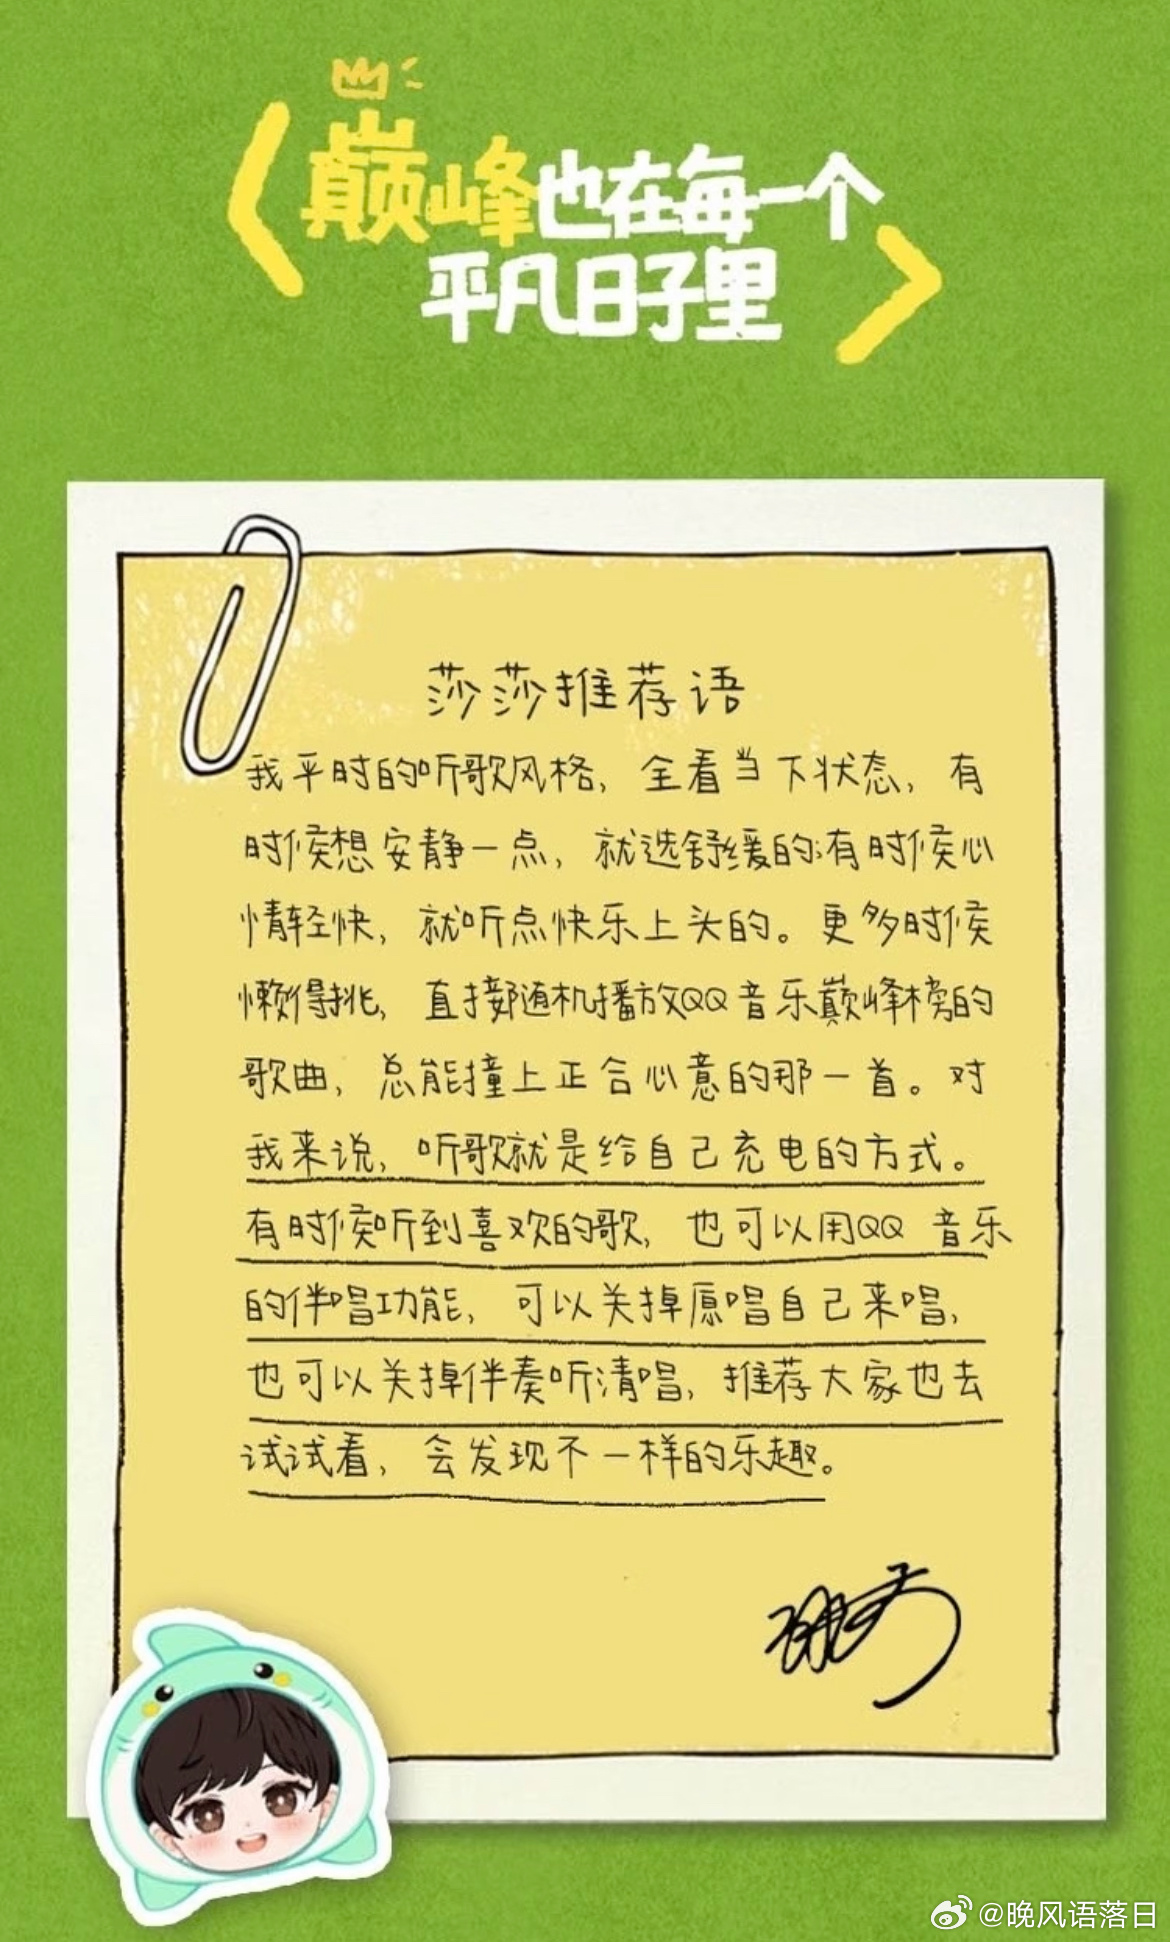 巅峰也在每一个
平凡日子里
莎莎推荐语
我平时的听歌风格，全看当下状态，有
时候想安静一点，就选舒缓的；有时候心
情轻快，就听点快乐上头的。更多时候
懒得挑，直接随机播放QQ音乐巅峰榜的
歌曲，总能撞上正合心意的那一首。对
我来说，听歌就是给自己充电的方式。
有时候听到喜欢的歌，也可以用QQ 音乐
的伴唱功能，可以关掉原唱自己来唱，
也可以关掉伴奏听清唱，推荐大家也去
试试看，会发现不一样的乐趣。
@晚风语落日